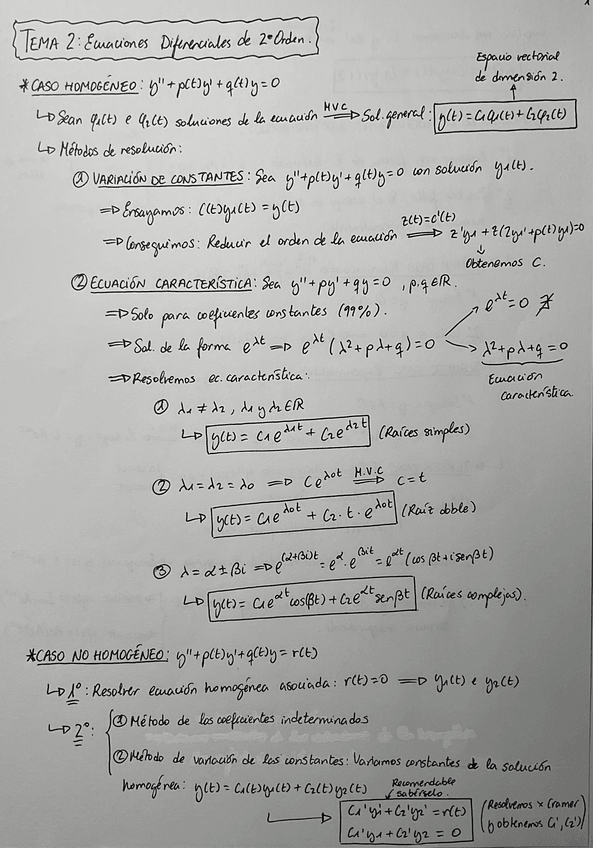 1
TEMA 2: Ecuaciones Diferenciales de 2º Orden.
* CASO HOMOGÉNEO: y''+p(t)y'+q(t)y=0
Espacio vectorial
de dimensión 2.
↳ Sean φ1(t) e φ2(t) soluciones de la ecuación =M.V.C=> Sol. general: y(t)=C1φ1(t)+C2φ2(t)
↳ Métodos de resolución:
① VARIACIÓN DE CONSTANTES: Sea y''+p(t)y'+q(t)y=0 con solución y1(t).
=> Ensayamos: C(t)y1(t) = y(t)
=> Conseguimos: Reducir el orden de la ecuación =z(t)=c'(t)=> z'y1 + z(2y1'+p(t)y1)=0
↓
Obtenemos C.
② ECUACIÓN CARACTERÍSTICA: Sea y''+py'+qy=0, p,q∈ℝ.
=> Solo para coeficientes constantes (99%).
e^λt=0 ∄
=> Sol. de la forma e^λt => e^λt (λ²+pλ+q)=0
λ²+pλ+q=0
Ecuación
característica.
=> Resolvemos ec. característica:
① λ1 ≠ λ2, λ1 y λ2∈ℝ
↳ y(t) = C1e^λ1t + C2e^λ2t (Raíces simples)
② λ1 = λ2 = λ0 => Ce^λ0t =M.V.C=> C=t
↳ y(t) = C1e^λ0t + C2·t·e^λ0t (Raíz doble)
③ λ = α±βi => e^(α+βi)t = e^α·e^βit = e^αt (cos βt+i sen βt)
↳ y(t) = C1e^αt cos(βt) + C2e^αt sen βt (Raíces complejas).
* CASO NO HOMOGÉNEO: y''+p(t)y'+q(t)y = r(t)
↳ 1º: Resolver ecuación homogénea asociada: r(t)=0 => y1(t) e y2(t)
↳ 2º: ① Método de los coeficientes indeterminados
② Método de variación de las constantes: Variamos constantes de la solución
homogénea: y(t) = C1(t)y1(t) + C2(t)y2(t)
Recomendable
sabérselo.
C1'y1' + C2'y2' = r(t)
C1'y1 + C2'y2 = 0
(Resolvemos x Cramer
y obtenemos C1', C2')